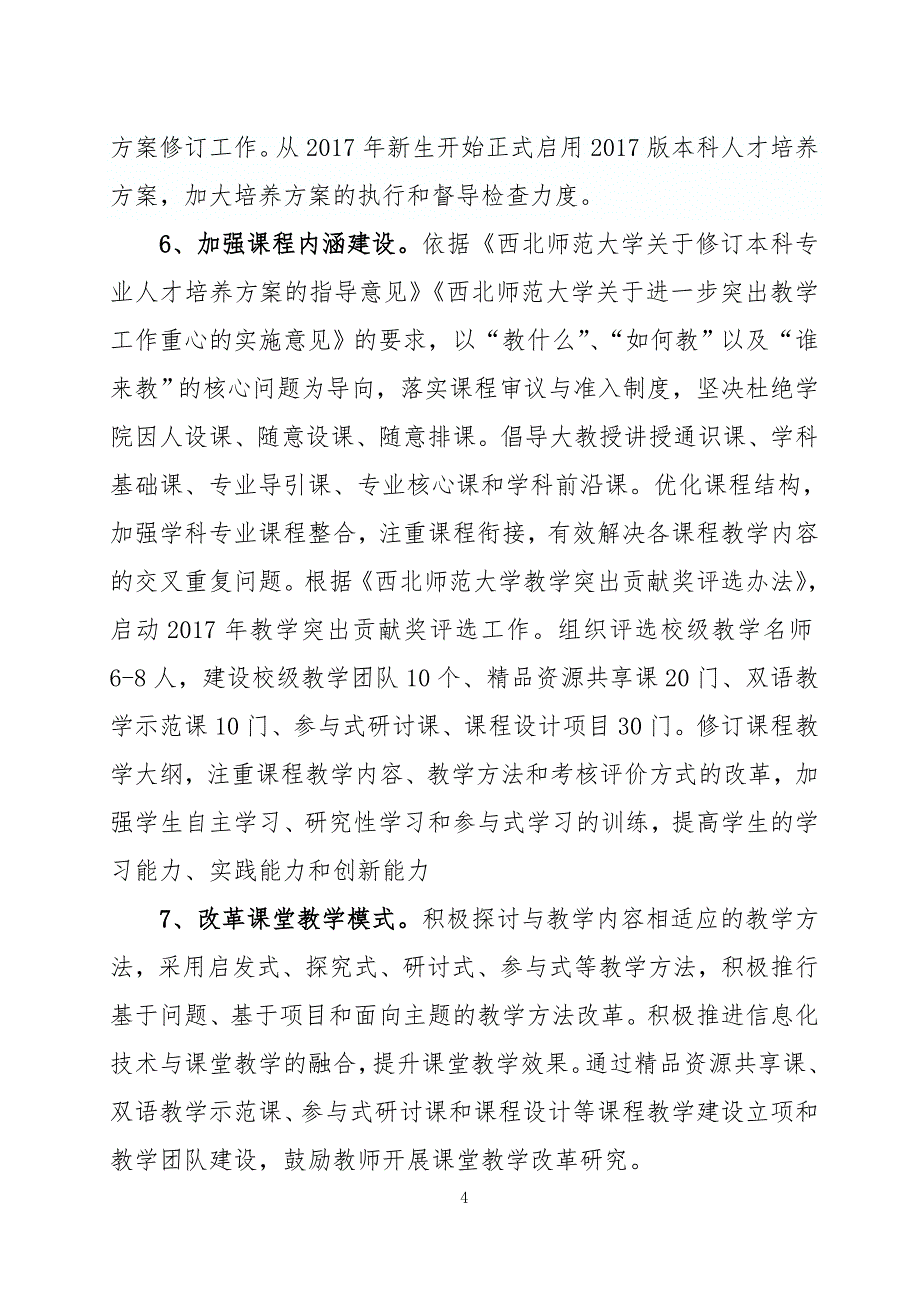 方案修订工作。从 2017 年新生开始正式启用 2017 版本科人才培养
方案，加大培养方案的执行和督导检查力度。
6、加强课程内涵建设。依据《西北师范大学关于修订本科专
业人才培养方案的指导意见》《西北师范大学关于进一步突出教学
工作重心的实施意见》的要求，以“教什么”、“如何教”以及“谁
来教”的核心问题为导向，落实课程审议与准入制度，坚决杜绝学
院因人设课、随意设课、随意排课。倡导大教授讲授通识课、学科
基础课、专业导引课、专业核心课和学科前沿课。优化课程结构，
加强学科专业课程整合，注重课程衔接，有效解决各课程教学内容
的交叉重复问题。根据《西北师范大学教学突出贡献奖评选办法》，
启动 2017 年教学突出贡献奖评选工作。组织评选校级教学名师
6-8 人，建设校级教学团队 10 个、精品资源共享课 20 门、双语教
学示范课 10 门、参与式研讨课、课程设计项目 30 门。修订课程教
学大纲，注重课程教学内容、教学方法和考核评价方式的改革，加
强学生自主学习、研究性学习和参与式学习的训练，提高学生的学
习能力、实践能力和创新能力
7、改革课堂教学模式。积极探讨与教学内容相适应的教学方
法，采用启发式、探究式、研讨式、参与式等教学方法，积极推行
基于问题、基于项目和面向主题的教学方法改革。积极推进信息化
技术与课堂教学的融合，提升课堂教学效果。通过精品资源共享课、
双语教学示范课、参与式研讨课和课程设计等课程教学建设立项和
教学团队建设，鼓励教师开展课堂教学改革研究。
4